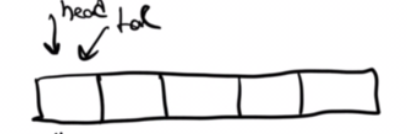 head
tail